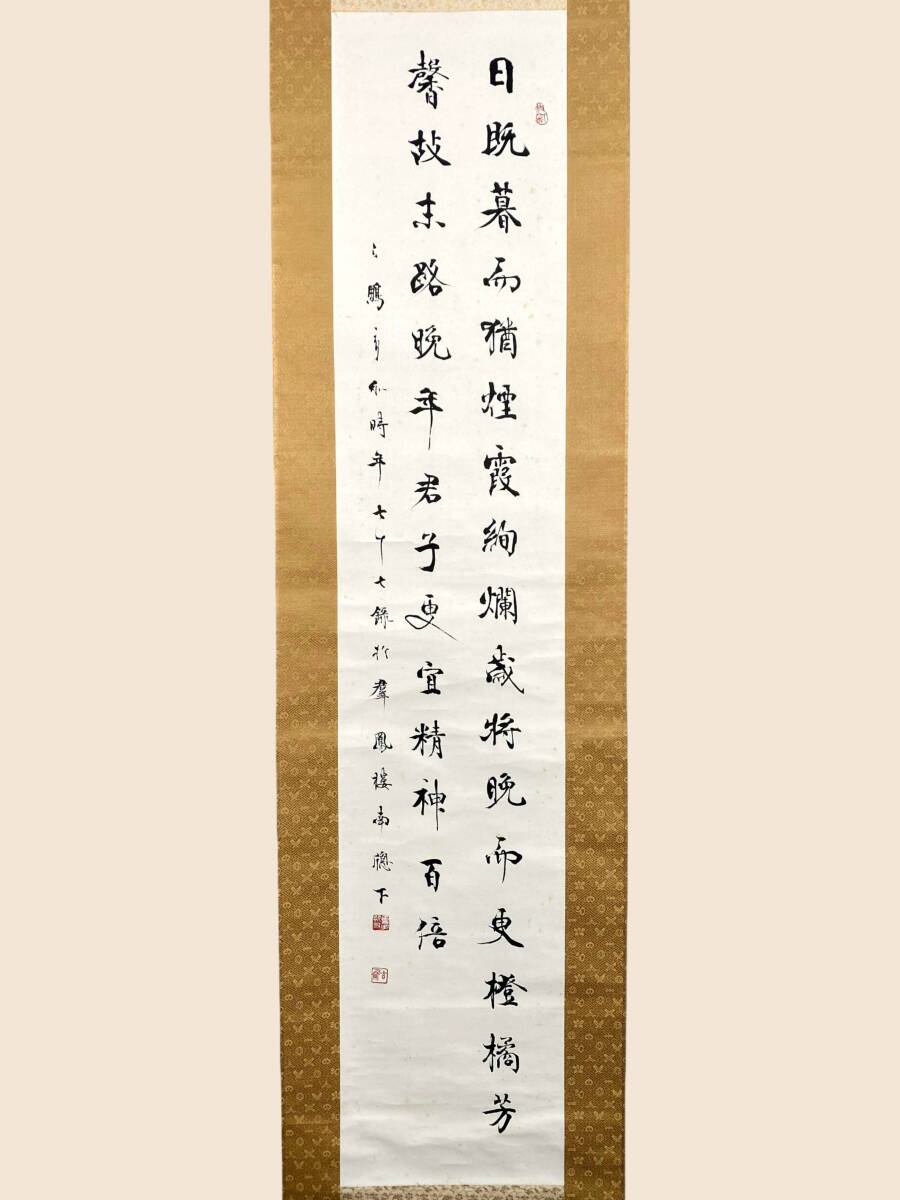 日既暮而猶煙霞絢爛歲將晚而更橙橘芳
馨故末路晚年君子更宜精神百倍
鵬 時年七十七錄於群鳳樓南窗下